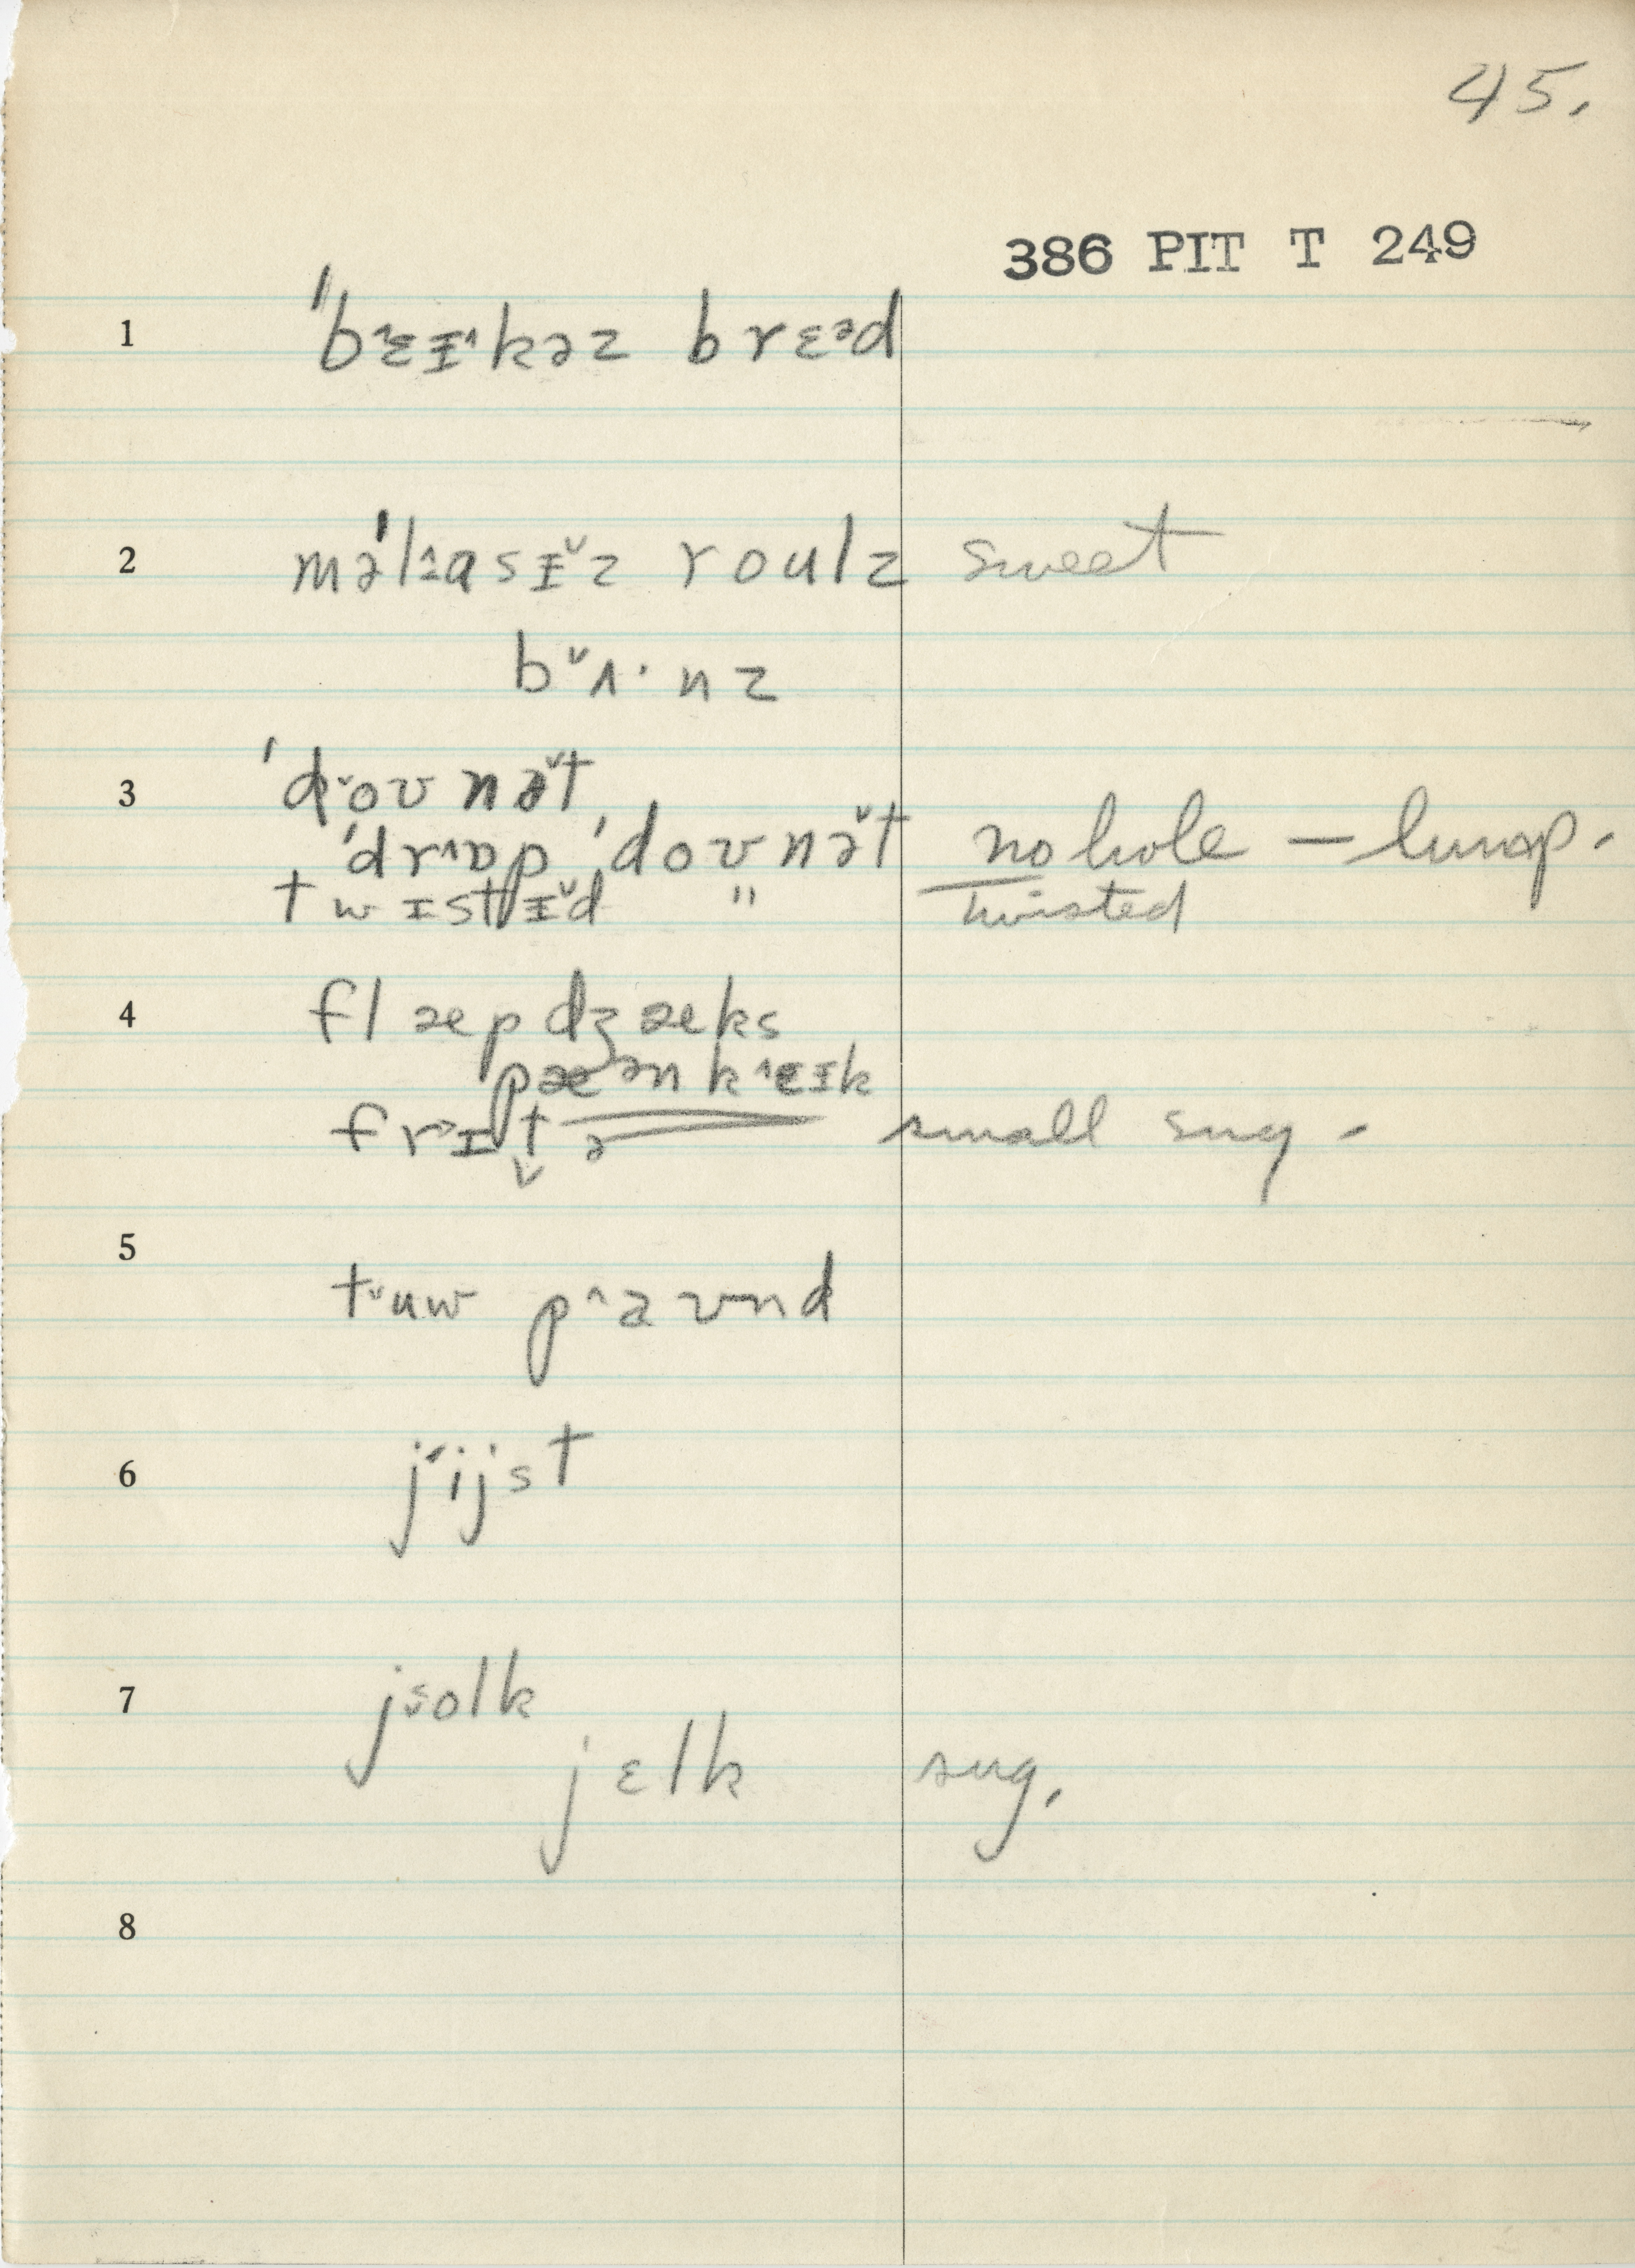 45.
386 PIT T 249
1 ˈbɛɪ^kəz brɛᵊd
2 məˈlasɪ̌z roulz sweet
b˅ʌ·nz
3 ˈd˅oʊnə̌t
ˈdr^ɒp ˈdoʊnə̌t no hole — lump.
twɪstɪ̌d " twisted
4 flæpdʒæks
pæᵊnk^eɪk
frɪtə small sug -
5 t˅uw p^aʊnd
6 j˂ijst
7 jsolk
jɛlk sug.
8